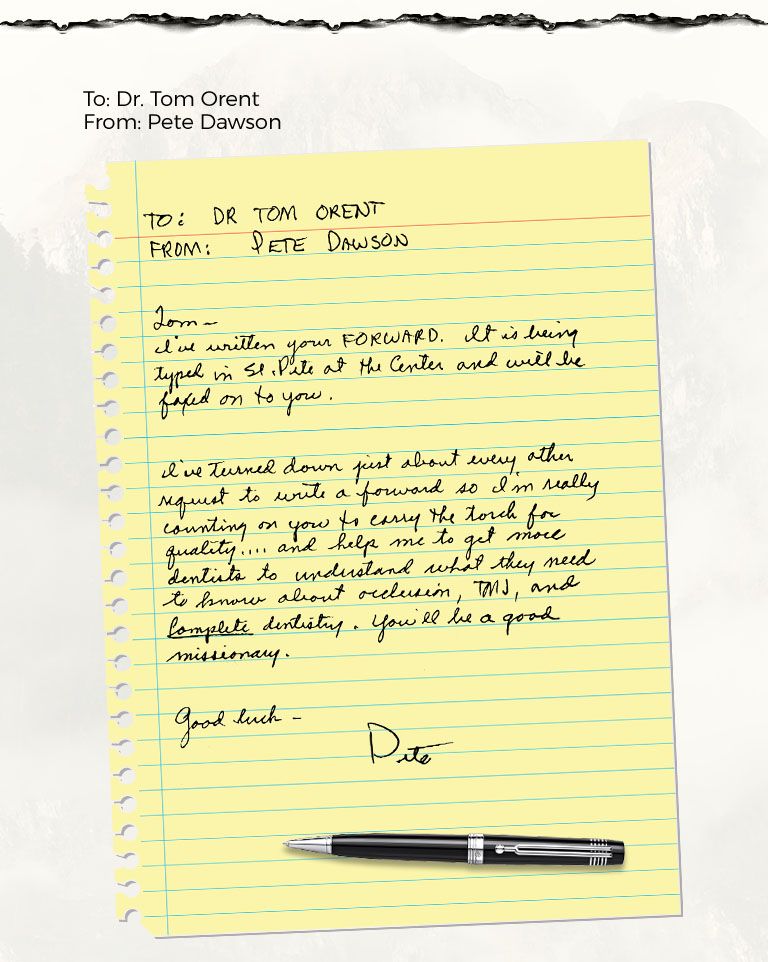 To: Dr. Tom Orent
From: Pete Dawson
TO: DR TOM ORENT
FROM: PETE DAWSON
Tom—
I've written your FORWARD. It is being
typed in St. Pete at the Center and will be
faxed on to you.
I've turned down just about every other
request to write a forward so I'm really
counting on you to carry the torch for
quality.... and help me to get more
dentists to understand what they need
to know about occlusion, TMJ, and
Complete dentistry. You'll be a good
missionary.
Good luck —
Pete